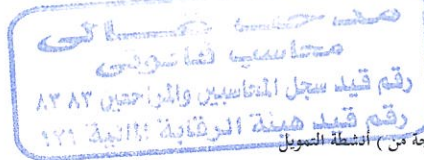 محاسب قانونى
رقم قيد سجل المحاسبين والمراجعين ٨٣ ٨٢
رقم قيد هيئة الرقابة المالية ١٢١
حة من ) أنشطة التمويل